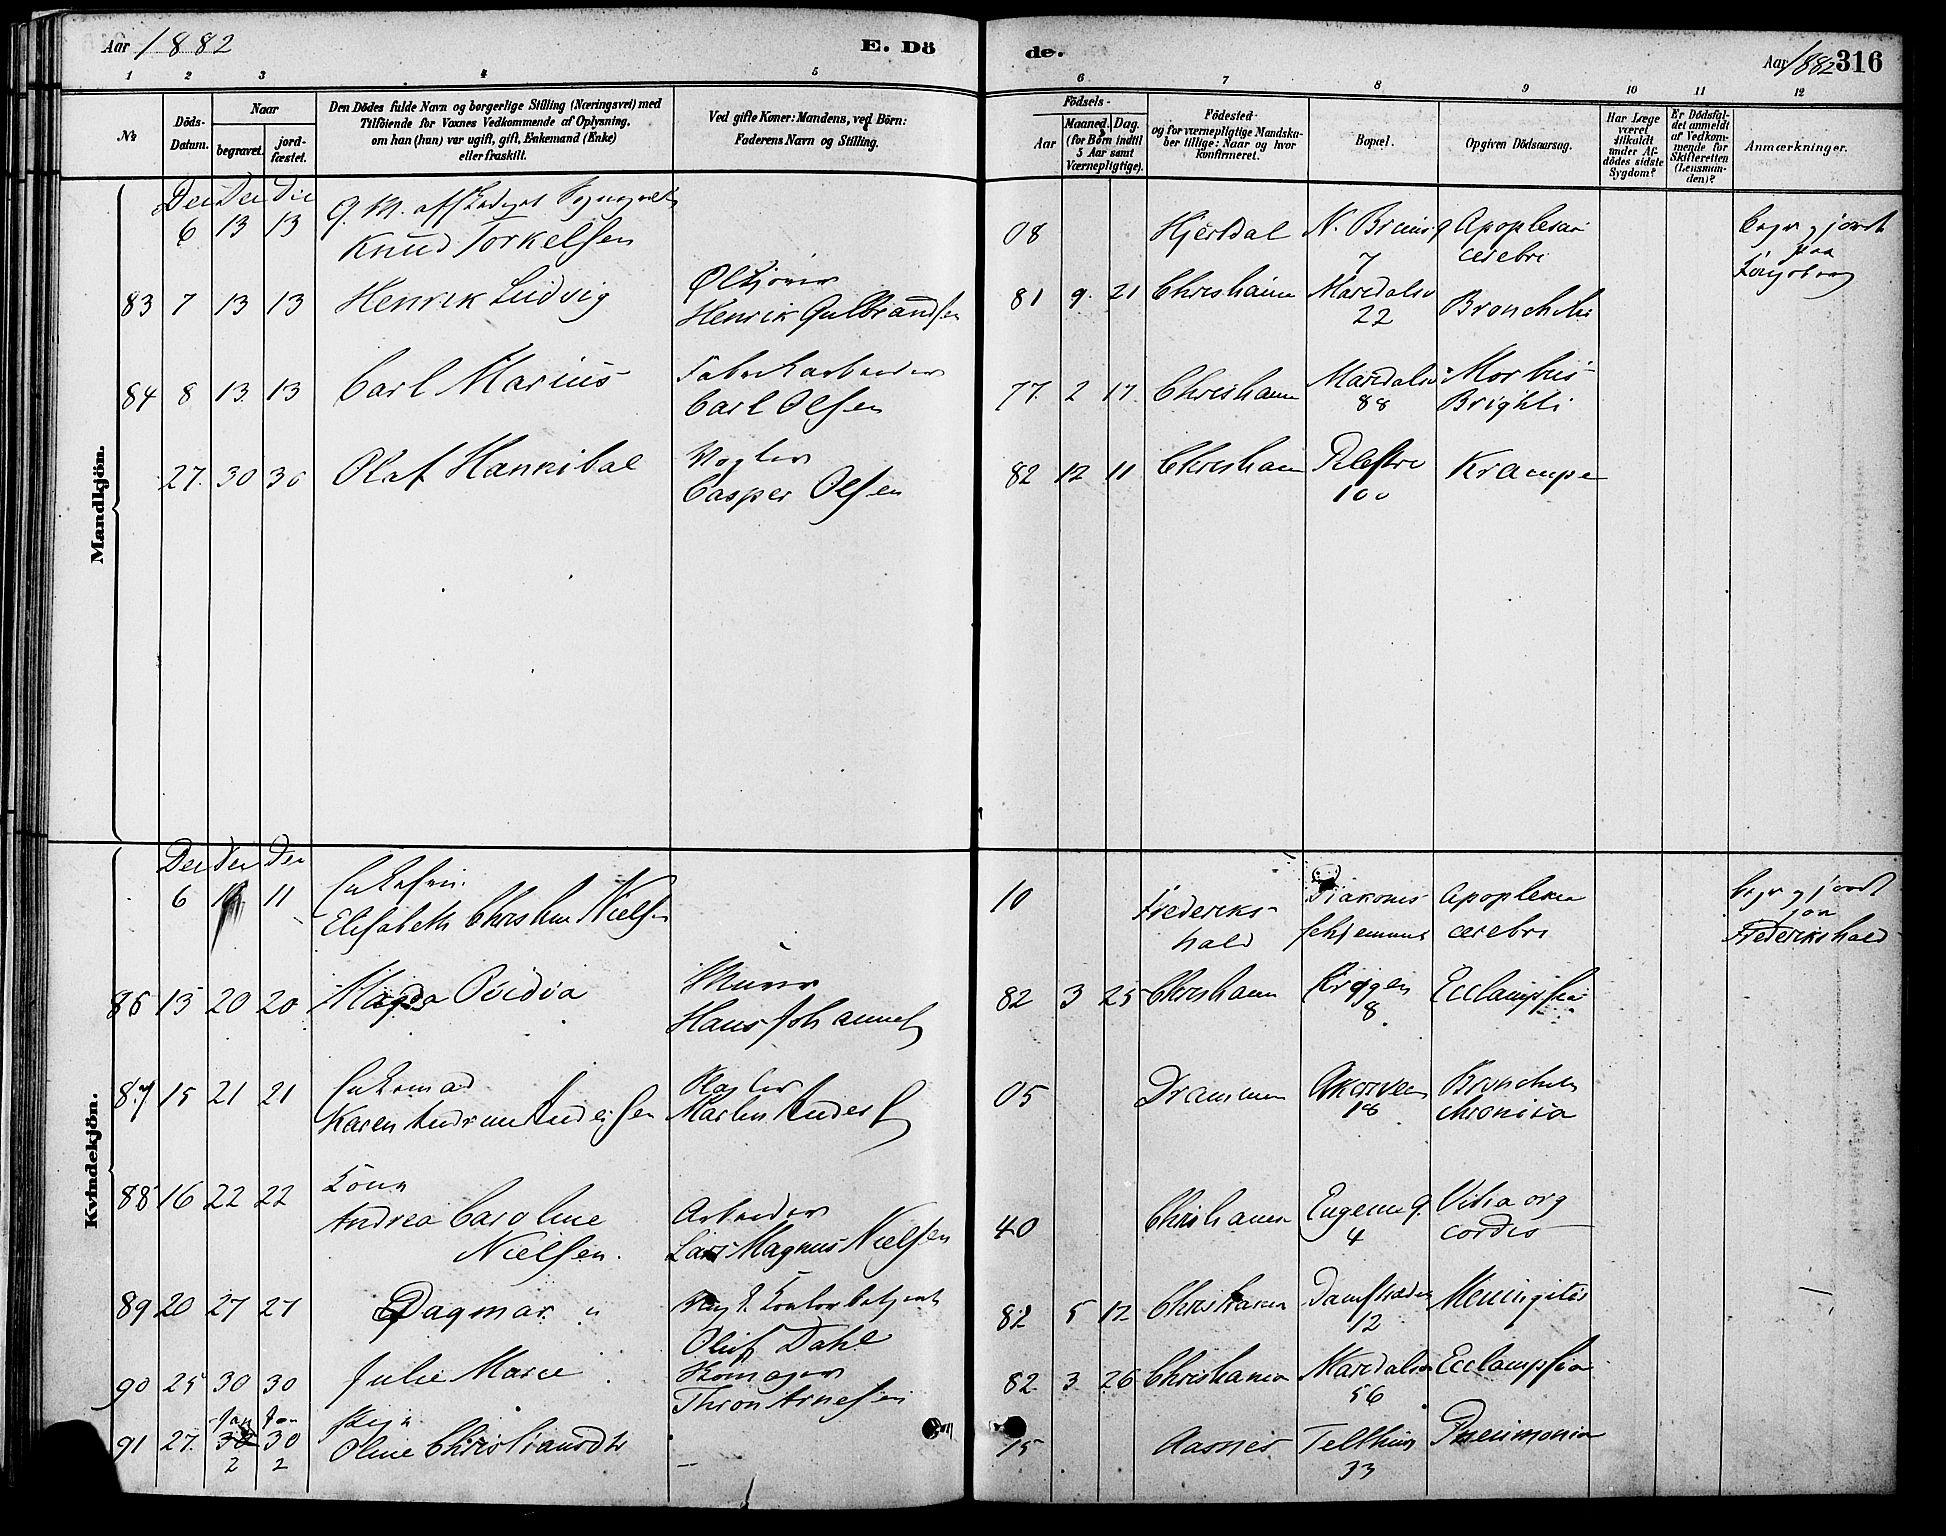 Aar 1882
E. Dö
de.
Aar 1882 316
1 2 3 4 5 6 7 8 9 10 11 12
№
Döds-
Datum.
Naar
begravet.
jord-
fæstet.
Den Dödes fulde Navn og borgerlige Stilling (Næringsvei) med
Tilföiende for Voxnes Vedkommende af Oplysning,
om han (hun) var ugift, gift, Enkemand (Enke)
eller fraskilt.
Ved gifte Koner: Mandens, ved Börn:
Faderens Navn og Stilling.
Födsels-
Aar
Maaned.
Dag.
(for Börn indtil
5 Aar samt
Værnepligtige).
Födested
og for værnepligtige Mandska-
ber tillige: Naar og hvor
konfirmeret.
Bopæl.
Opgiven Dödsaarsag.
Har Læge
været
tilkaldt
under Af-
dödes sidste
Sygdom?
Er Dödsfal-
det anmeldt
af Vedkom-
mende for
Skifteretten
(Lensman-
den)?
Anmærkninger.
Mandkjön.
6 13 13
Knud Torkelsen
08 Hjerdal
7
Apoplexia
cerebri
83 7 13 13 Henrik Ludvig
Henrik Gulbrandsen
81 9 21 Christiania Maridalsv
22
Bronchitis
84 8 13 13 Carl Marius
Fabrikarbeider
Carl Olsen
77 2 17 Christiania Maridalsv
88
Morbus
Brightii
27 30 30 Olaf Hannibal
Casper Olsen
82 12 11 Christiania
100
Krampe
Kvindekjön.
Dec Dec Dec
6 11
Elisabeth Christine Nielsen
10 Frederiks-
hald
Diakonis-
sehjemmet
Apoplexia
cerebri
Frederikshald
86 13 20 20 Magda Ovidia
Murer
Hans Johannes
82 3 25 Christiania Krogen
8
Ecclampsia
87 15 21 21
Karen Andrine Andersen
Martin Anders
05 Drammen Akersveien
18
Bronchitis
chronica
88 16 22 22 Kone
Andrea Caroline
Nielsen.
Arbeider
Lars Magnus Nielsen
40 Christiania Eugenie g.
4
Vitia org
cordis
89 20 27 27 Dagmar
Oluf Dahl
82 5 12 Christiania Damstræde
12
Meningitis
90 25 30 30 Julie Marie
Skomager
Thron Arnesen
82 3 26 Christiania Maridalsv
56
Ecclampsia
91 27 30 30
Jan Jan
2 2
Pige
Oline Christiansdtr
—
15 Aasnes Telthusg
33
Pneumonia